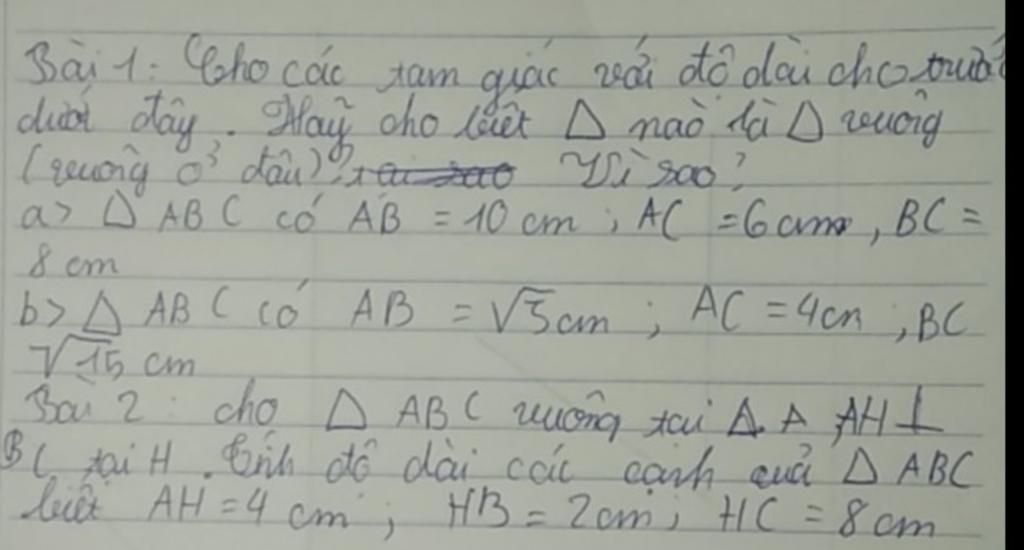 Bài 1: Cho các tam giác với độ dài cho trước
dưới đây. Hãy cho biết Δ nào là Δ vuông
(vuông ở đâu)? Vì sao?
a> Δ ABC có AB = 10 cm ; AC = 6 cm, BC =
8 cm
b> Δ ABC có AB = √5 cm ; AC = 4 cm ; BC
√15 cm
Bài 2 : cho Δ ABC vuông tại Δ A, AH ⊥
BC tại H. Tính độ dài các cạnh của Δ ABC
biết AH = 4 cm ; HB = 2 cm ; HC = 8 cm